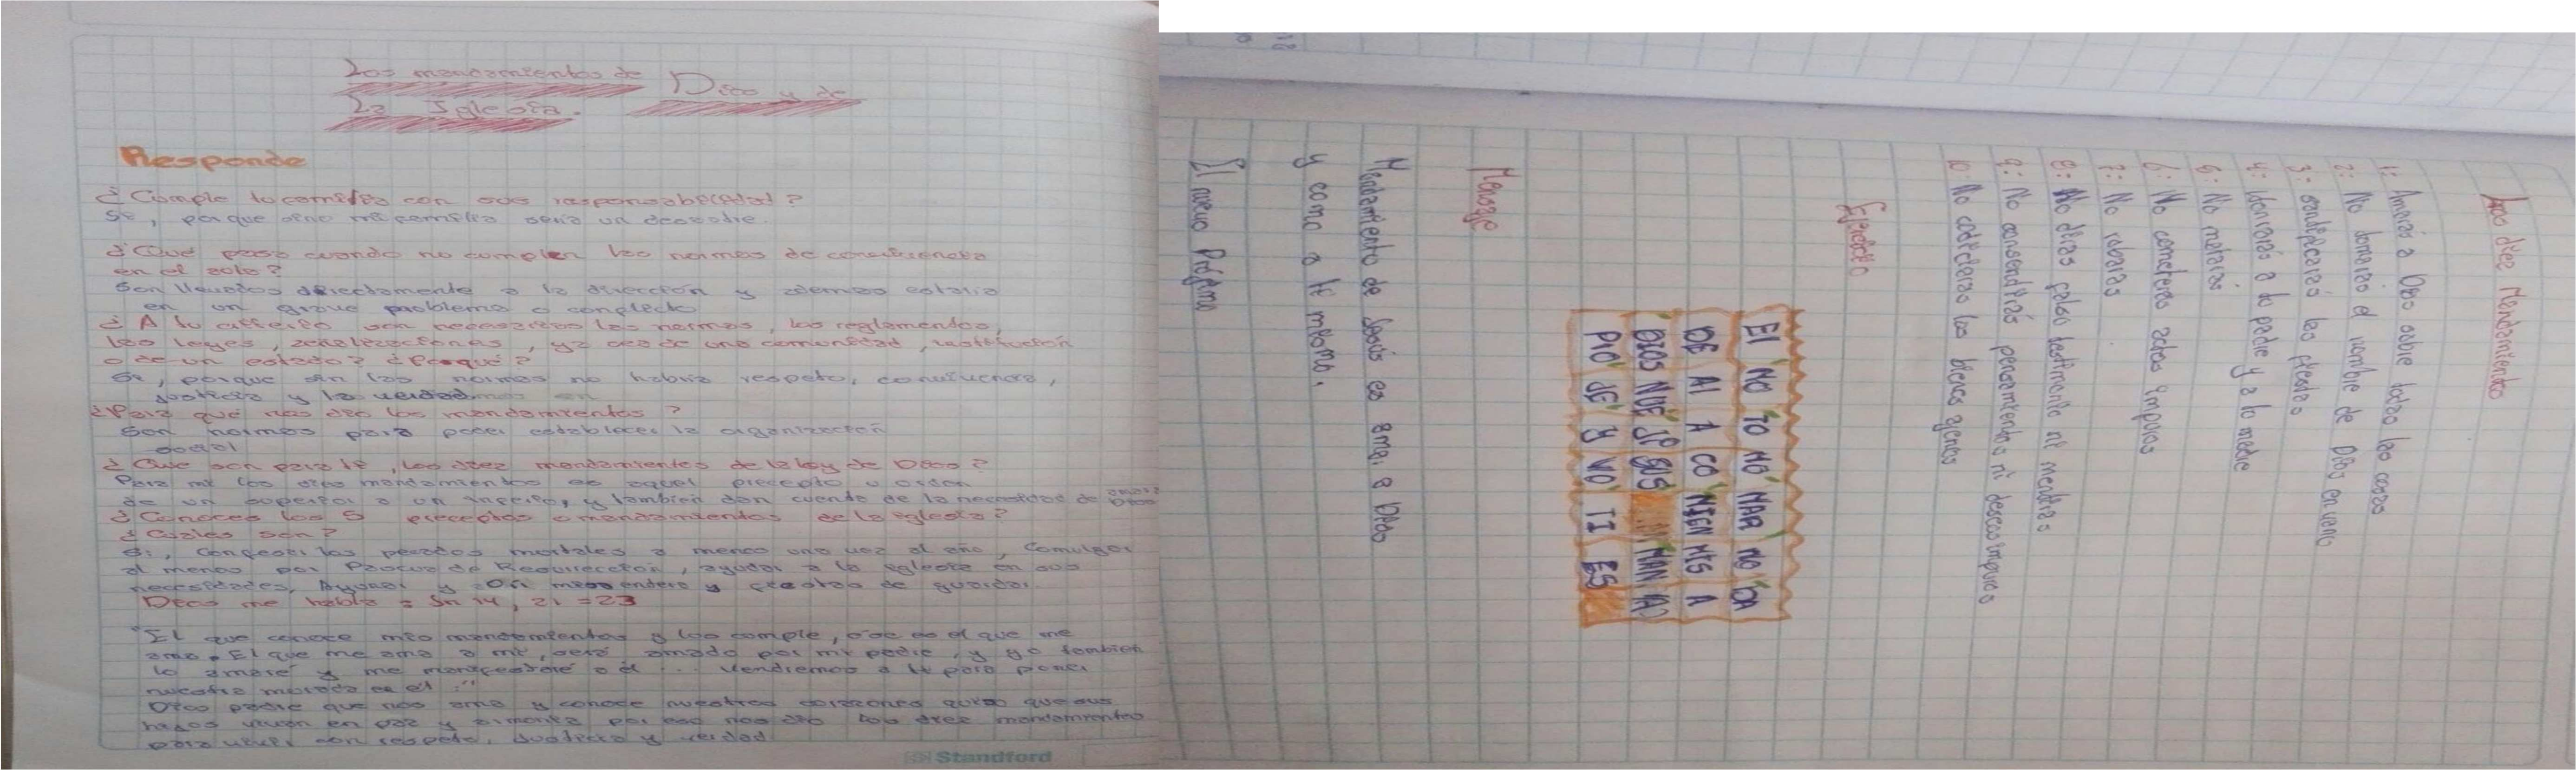 Los mandamientos de Dios y de
La Iglesia.
Responde
¿Cumple tu familia con sus responsabilidad?
Si, porque sino mi familia seria un desastre.
¿Que pasa cuando no cumplen las normas de convivencia
en el aula?
Son llevados directamente a la dirección y además estaria
en un grave problema o conflicto
¿A tu criterio son necesarias las normas, los reglamentos,
las leyes, señalizaciones, ya sea de una comunidad, institución
o de un estado? ¿Porqué?
Si, porque sin las normas no habria respeto, convivencia,
justicia y la verdad
¿Para qué nos dio los mandamientos?
Son normas para poder establecer la organización
social
¿Que son para ti, los diez mandamientos de la ley de Dios?
Para mi los diez mandamientos es aquel precepto u orden
de un superior a un inferior, y tambien dan cuenta de la necesidad de amar a Dios
¿Conoces los 5 preceptos o mandamientos de la iglesia?
¿Cuáles son?
Si, Confesar los pecados mortales a menos una vez al año, Comulgar
al menos por Pascua de Resurrección, ayudar a la iglesia en sus
necesidades, Ayunar y Oir misa entera y fiestas de guardar.
Dios me habla: Jn 14, 21 = 23
"El que conoce mis mandamientos y los cumple, ese es el que me
ama. El que me ama a mi, será amado por mi padre, y yo tambien
lo amaré y me manifestaré a él ... Vendremos a él para poner
nuestra morada en él."
Dios padre que nos ama y conoce nuestros corazones quiso que sus
hijos vivan en paz y armonia por eso nos dio los diez mandamientos
para vivir con respeto, justicia y verdad.
Standford
Los diez Mandamiento
1: Amarás a Dios sobre todas las cosas
2: No tomarás el nombre de Dios en vano
3: santificarás las fiestas
4: Honrarás a tu padre y a tu madre
5: No matarás
6: No cometeras actos impuros
7: No robaras
8: No dirás falso testimonio ni mentiras
9: No consentirás pensamientos ni deseos impuros
10: No codiciaras los bienes ajenos
Ejercicio
EL NO TO MÓ NAR NO DA
DE AL A CO NIEN MIS A
DIOS NUE JP SUS MAN
PIO JE Y VO TI ES
Mensaje
Mandamiento de Jesús es amar a Dios
y como a ti mismo.
El nuevo Prójimo